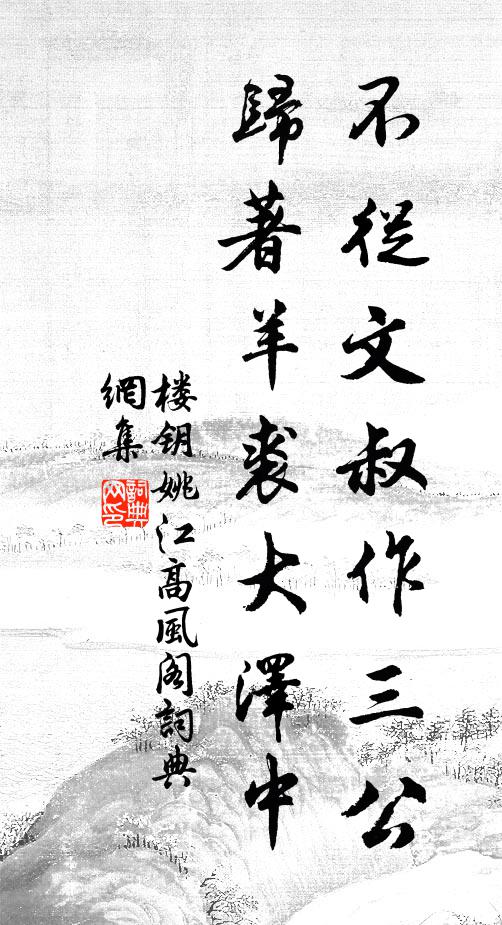 不從文叔作三公
歸著羊裘大澤中
楼钥姚江高風阁詞典
網集
詞典網印